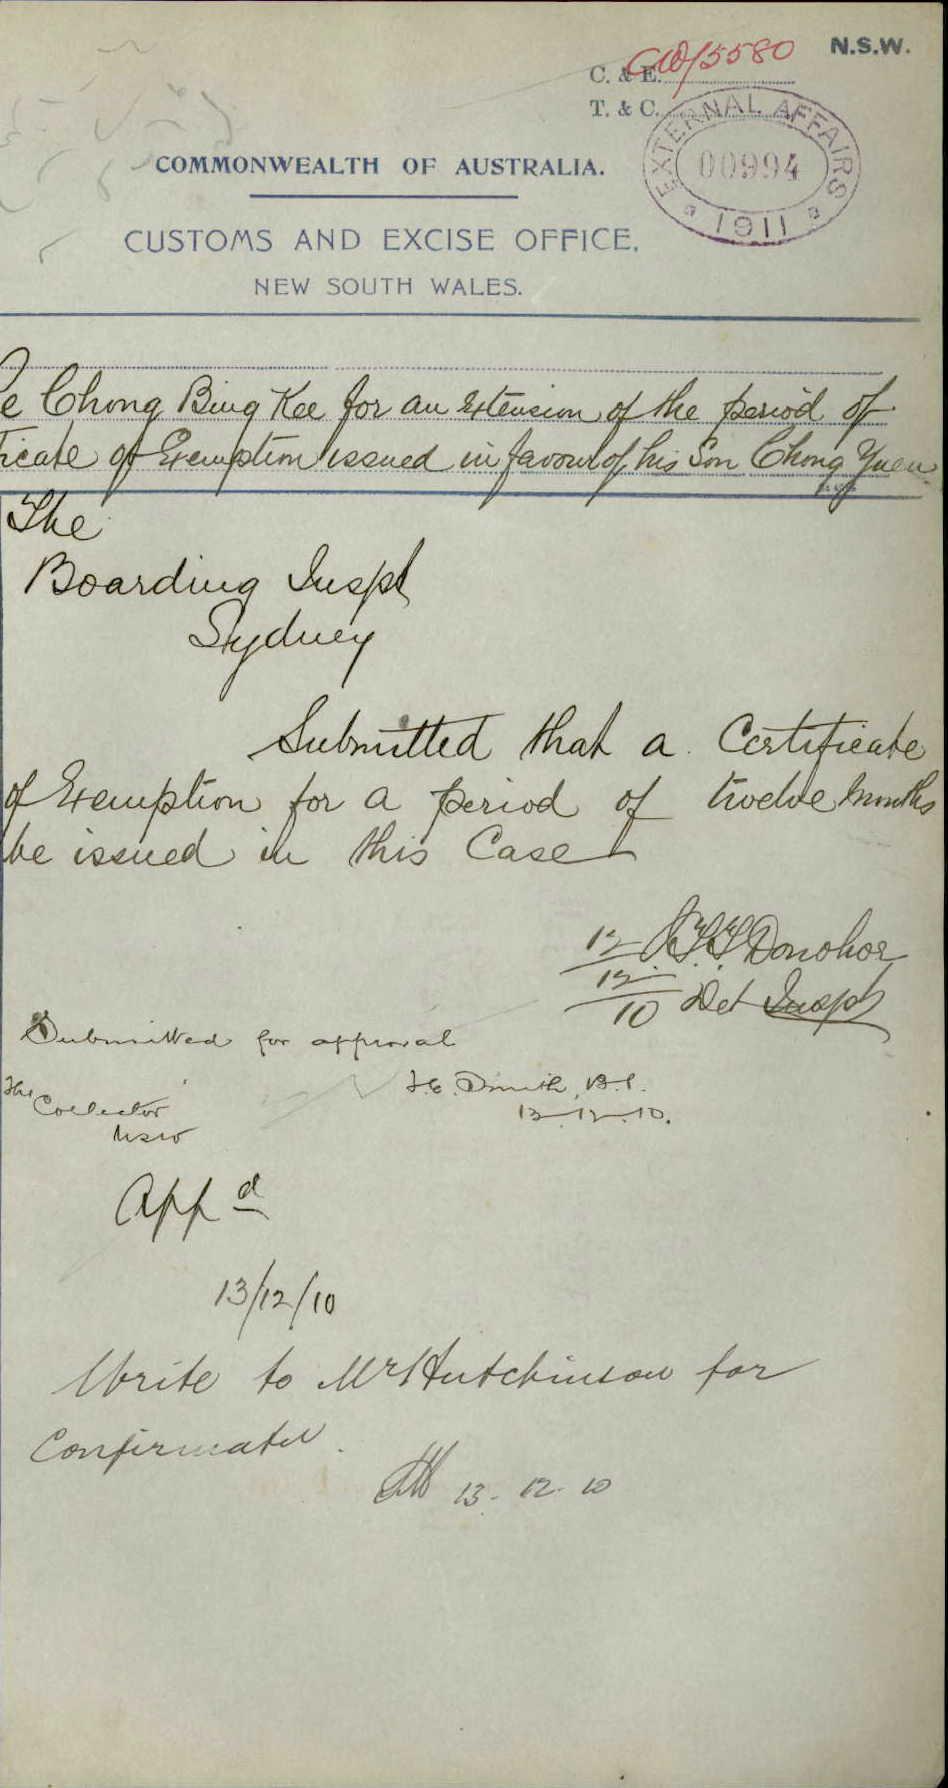 N.S.W.
C. & E. C10/5580
T. & C.
EXTERNAL AFFAIRS
00994
1911
COMMONWEALTH OF AUSTRALIA.
CUSTOMS AND EXCISE OFFICE,
NEW SOUTH WALES.
e Chong Bing Kee for an extension of the period of
ficate of Exemption issued in favour of his Son Chong Yuen
The
Boarding Inspt
Sydney
Submitted that a Certificate
of Exemption for a period of twelve months
be issued in this Case
12 Donohoe
12
10 Det Inspt
Submitted for approval
The Collector
NSW
B.I.
13.12.10.
Appd
13/12/10
Write to Mr Hutchinson for
Confirmatn.
13. 12. 10